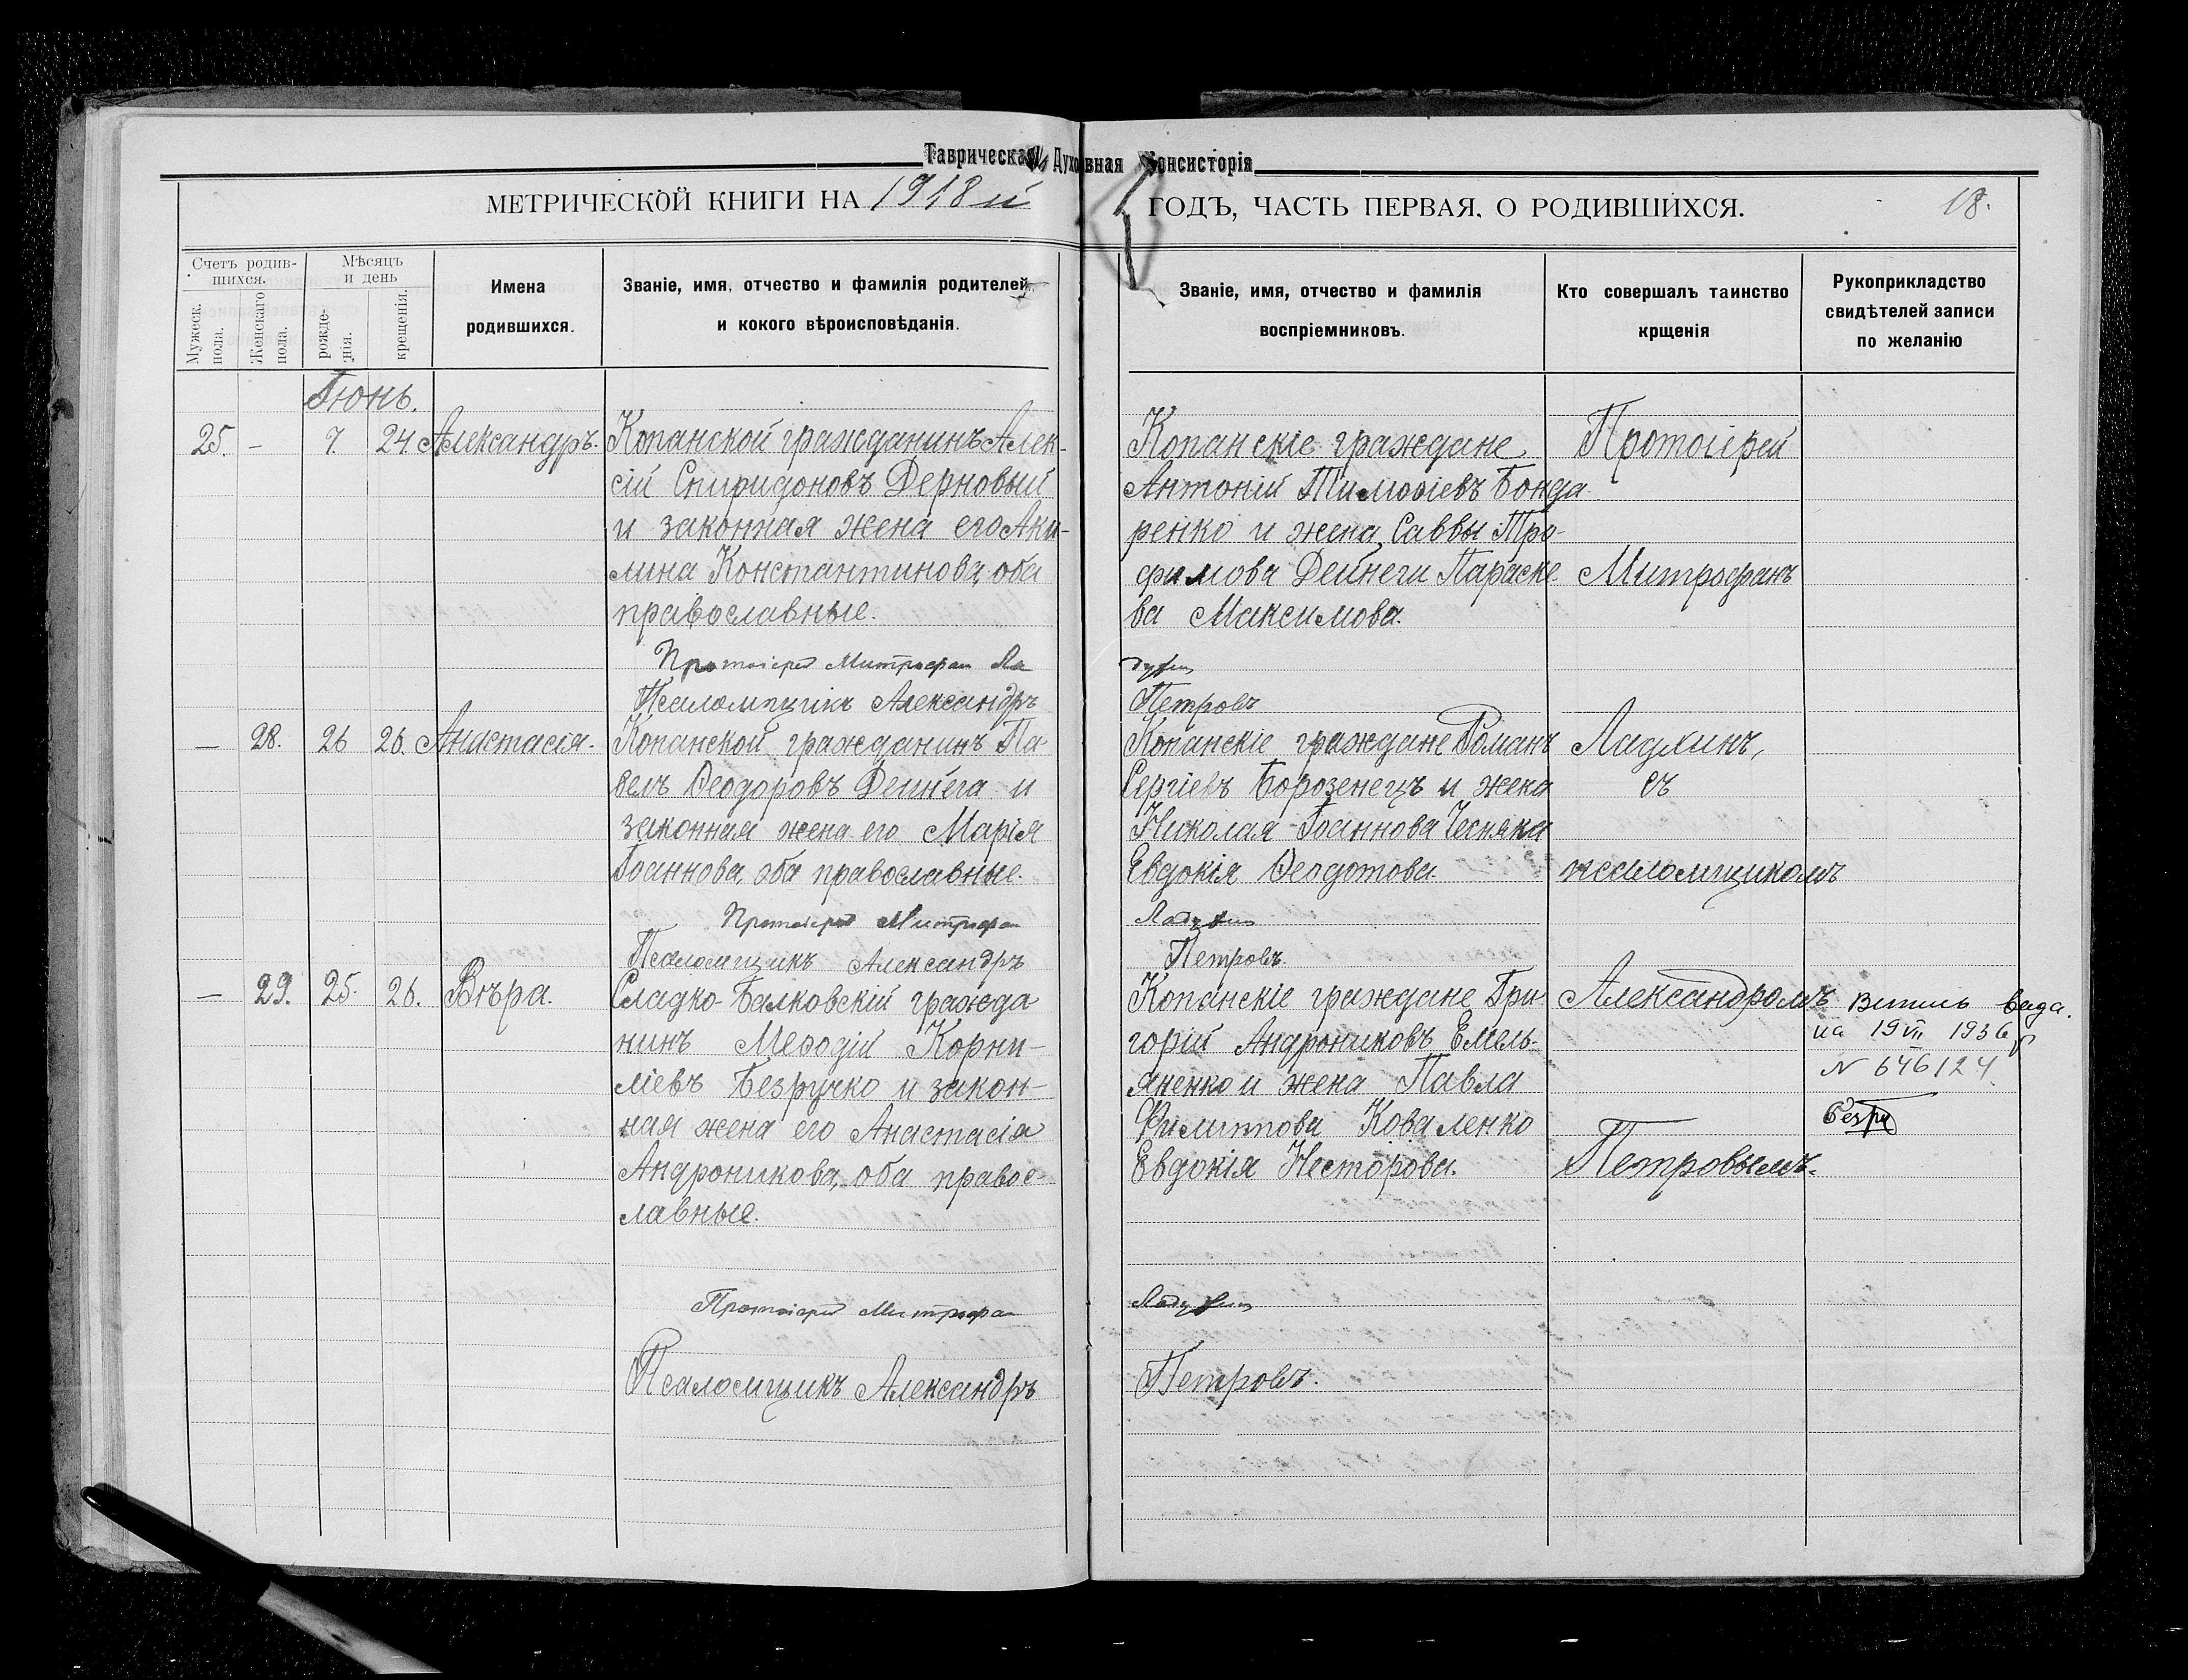 Таврическая Духовная Консисторія
МЕТРИЧЕСКОЙ КНИГИ НА 1918й ГОДЪ, ЧАСТЬ ПЕРВАЯ, О РОДИВШИХСЯ. 18.
Счетъ родив-
шихся.
Мужеск.
пола.
Женскаго
пола.
Мѣсяцъ
и день
рожде-
нія.
крещенія.
Имена
родившихся.
Званіе, имя, отчество и фамилія родителей,
и кокого вѣроисповѣданія.
Званіе, имя, отчество и фамилія
воспріемниковъ.
Кто совершалъ таинство
крщенія
Рукоприкладство
свидѣтелей записи
по желанію
Іюнь.
25. - 7. 24. Александръ.
Копанской гражданинъ Алек-
сій Спиридоновъ Дерновый
и законная жена его Аки-
лина Константинова, оба
православные.
Протоіерей Митрофан Ла
Псаломщикъ Александръ
Копанскіе граждане
Антоній Тимоѳіевъ Бонда
ренко и жена Саввы Тро-
фимова Дейнеги Параске-
ва Максимова.
Петровъ
Протоіерей
Митрофанъ
— 28. 26 26. Анастасія.
Копанской гражданинъ Па-
велъ Ѳеодоровъ Дейнега и
законная жена его Марія
Іоаннова, оба православные.
Протоіерей Митрофан
Псаломщикъ Александръ
Копанскіе граждане Романъ
Сергіевъ Борозенецъ и жена
Николая Іоаннова Чесняка
Евдокія Ѳеодотова.
Петровъ.
съ
псаломщикомъ
— 29. 25. 26. Вѣра.
Сладко-Балковскій гражда
нинъ Меѳодій Корни-
ліевъ Безручко и закон-
ная жена его Анастасія
Андроникова, оба правос-
лавные.
Протоіерей Митрофан
Псаломщикъ Александръ
Копанскіе граждане Гри-
горій Андрониковъ Емель-
яненко и жена Павла
Филиппова Коваленко
Евдокія Несторова.
Петровъ.
Александромъ
Петровымъ.
вида.
на 19 VII 1936 р
N 646124